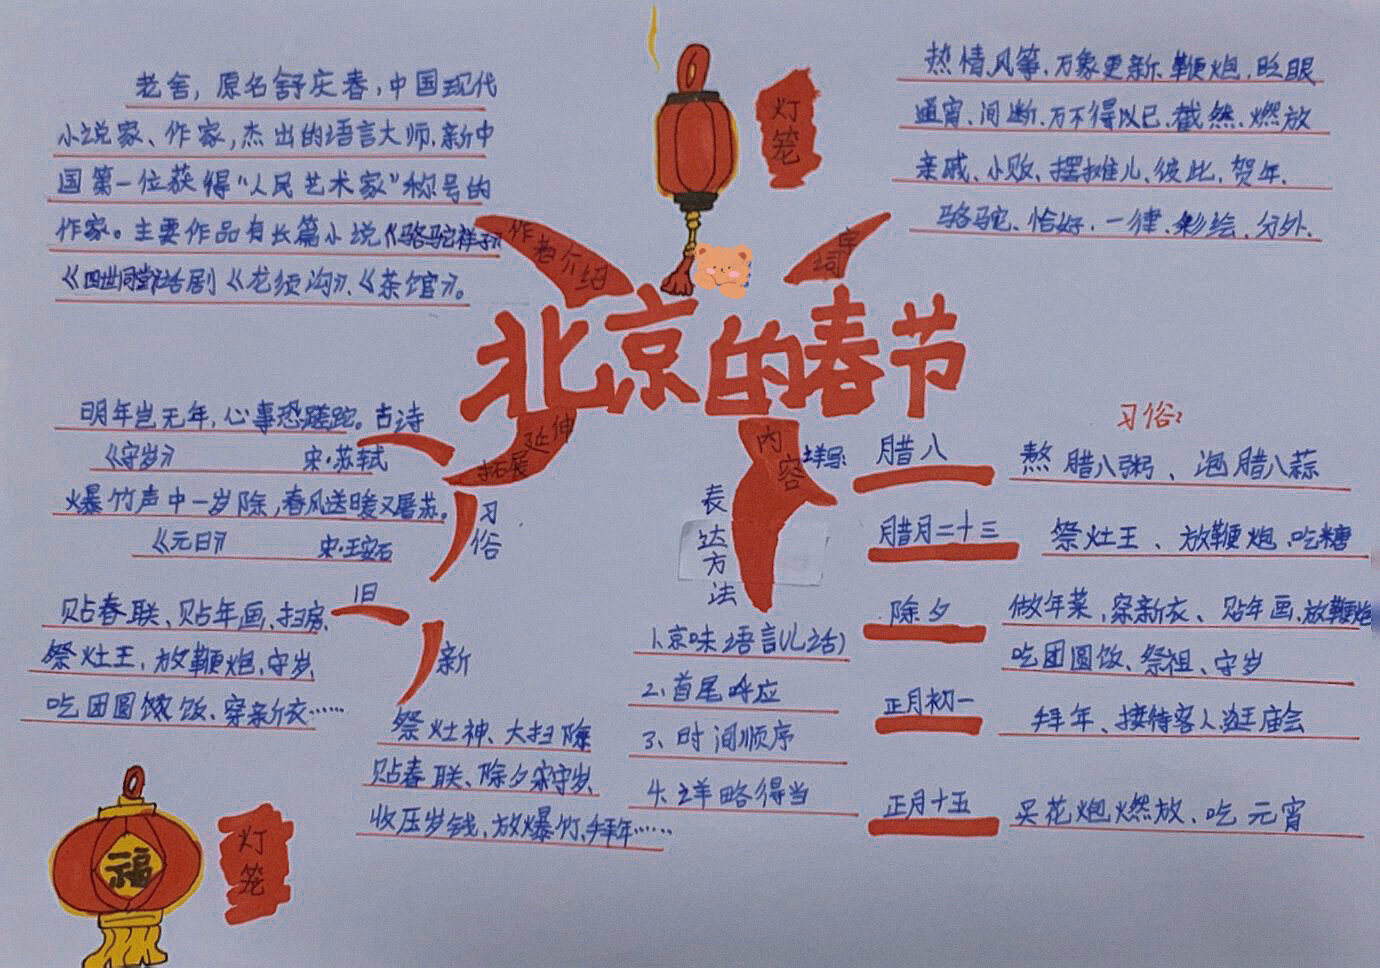 北京的春节
灯笼
作者介绍
老舍，原名舒庆春，中国现代
小说家、作家，杰出的语言大师、新中
国第一位获得“人民艺术家”称号的
作家。主要作品有长篇小说《骆驼祥子》
《四世同堂》话剧《龙须沟》、《茶馆》。
字词
热情、风筝、万象更新、鞭炮、眨眼
通宵、间断、万不得以已、截然、燃放
亲戚、小贩、摆摊儿、彼此、贺年、
骆驼、恰好、一律、彩绘、分外、
拓展延伸
明年岂无年，心事恐蹉跎。古诗
《守岁》 宋·苏轼
爆竹声中一岁除，春风送暖又屠苏。
《元日》 宋·王安石
习俗
旧
贴春联、贴年画、扫房、
祭灶王，放鞭炮、守岁、
吃团圆饭、穿新衣……
新
祭灶神、大扫除
贴春联、除夕守岁、
收压岁钱，放爆竹、拜年……
内容
详写：
习俗：
腊八
熬腊八粥、泡腊八蒜
腊月二十三
祭灶王、放鞭炮、吃糖
除夕
做年菜，穿新衣、贴年画、放鞭炮
吃团圆饭、祭祖、守岁
正月初一
拜年、接待客人逛庙会
正月十五
买花炮燃放、吃元宵
表达方法
1、京味语言（儿话）
2、首尾呼应
3、时间顺序
4、详略得当
灯笼
福